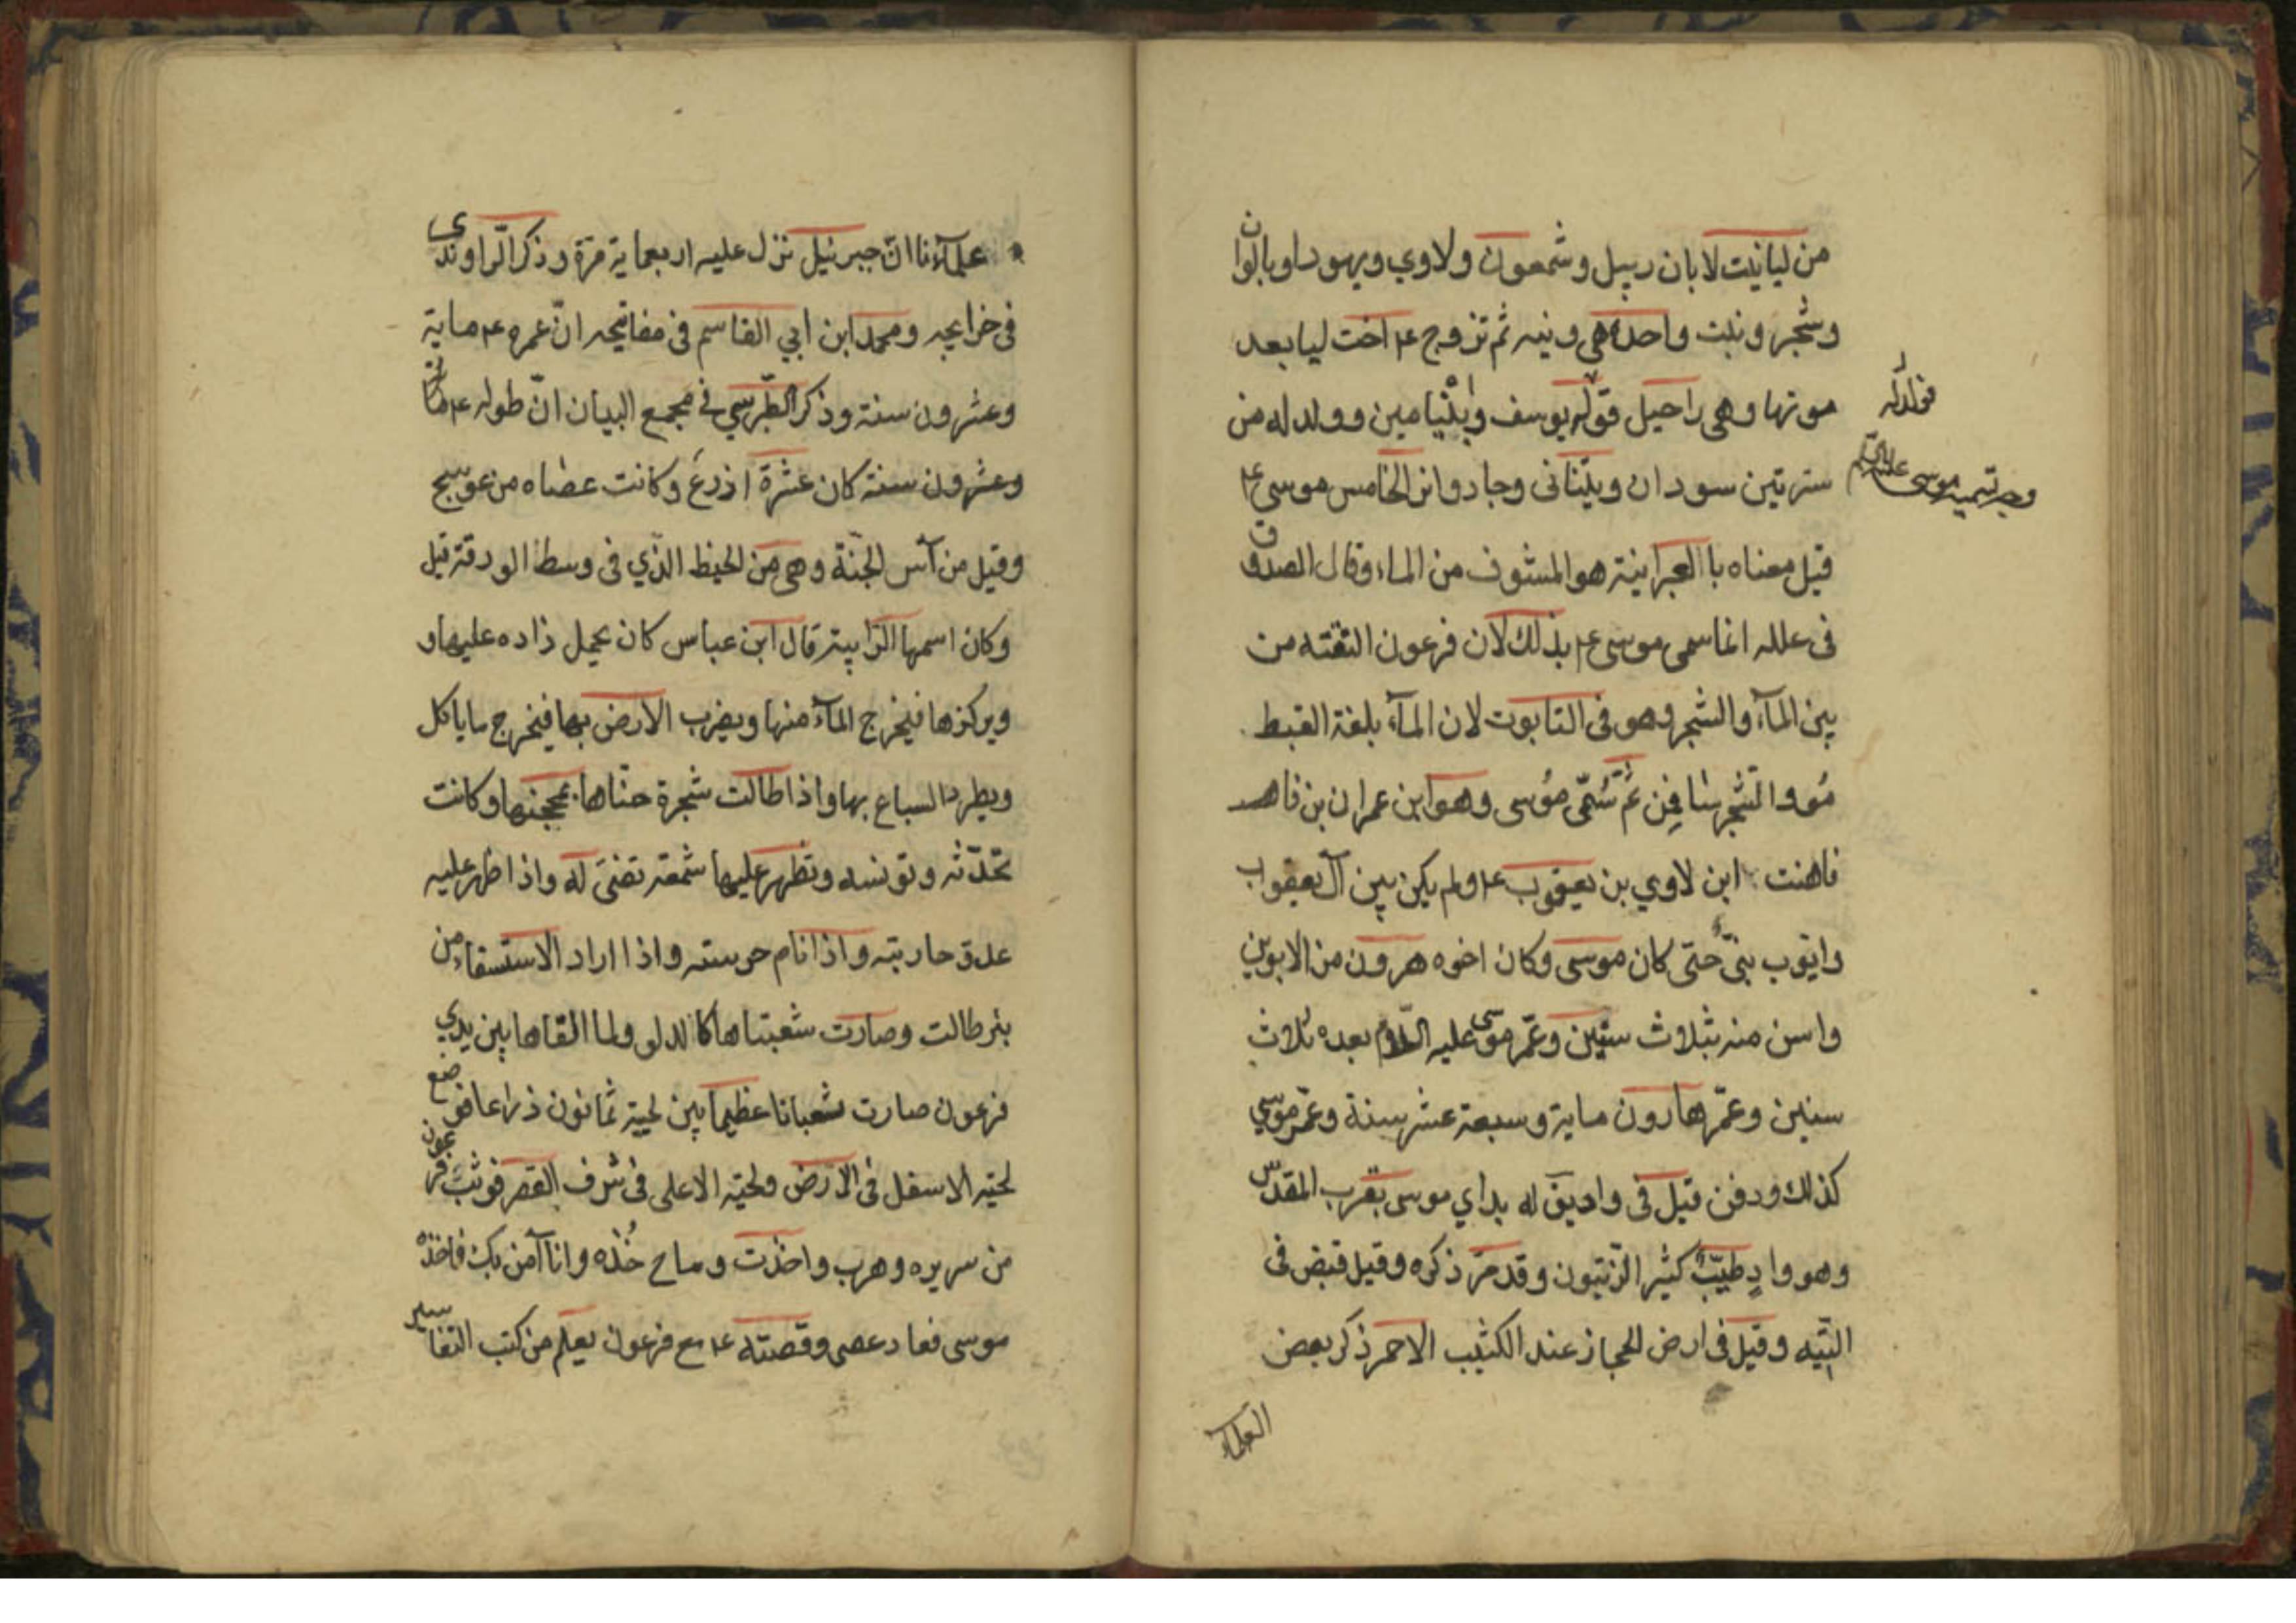 من ليا نيت لابان ربيل وشمعون ولاوي ويهودا وبالوان
وشجر ونبت واحدة هي ونيه ثم تزوج ع اخت ليا بعد
موتها وهي راحيل فولد له يوسف وابنيامين وولد له من
فولد له
سريتين سودان ويثنانى وجاد وانر الخامس موسى ع
وجه تسميه موسى عليه السلام
قيل معناه باالعبرانية هو المشوف من الماء وقال الصدوق
فى علله انما سمى موسى ع بذلك لان فرعون التقته من
بين المآء والشجر وهو فى التابوت لان المآء بلغة القبط
مُو والشجر سا فمِن ثم سُمّى مُوسى وهو ابن عمران بن قاهث
فاهنت ابن لاوي بن يعقوب ع ولم يكن بين آل يعقوب
وايوب نبىّ حتى كان موسى وكان اخوه هرون من الابوين
واسن منه بثلاث سنين وعمّر موسى عليه السلام بعده ثلاث
سنين وعمّر هارون ماية وسبعة عشر سنة وعمّر موسي
كذلك ودفن قيل فى واديق له بداي موسى بقرب المقدس
وهو وادٍ طيّبٌ كثير الزّيتون وقد مرّ ذكره وقيل قبض فى
التّيه وقيل فى ارض الحجاز عند الكثيب الاحمر ذكر بعض
العلمآء
علمآءنا انّ جبرئيل نزل عليه اربعماية مرّة وذكر الرّاوندى
فى خرايجه ومحمد ابن ابي القاسم فى مفاتيحه انّ عمره ع ماية
وعشرون سنة وذكر الطّبرسي في مجمع البيان انّ طوله ع ماية
وعشرون سنة كان عشرة اذرعَ وكانت عصاه من عوسج
وقيل من آس الجنّة وهي من الخيط الذّي فى وسط الورقة قيل
وكان اسمها الزايية قال ابن عباس كان يحمل زاده عليها و
ويركزها فيخرج المآء منها ويضرب الارض بها فيخرج ما ياكل
ويطرد السباع بها واذا طالت شجرة حنّاها بمحجنها وكانت
تحدّثه وتونسه وتظهر عليها شمعة تضئ له واذا ظهر عليه
عدو حاربته واذا نام حرسته واذا اراد الاستسقاء من
بئر طالت وصارت شعبتاها كالدلو ولما القاها بين يدي
فرعون صارت شعبانا عظيما بين لحيية ثمانون ذراعا فوضع
لحيه الاسفل فى الارض ولحيه الاعلى فى شرف القصر فوثب فرعون
من سريره وهرب واخذت وصاح خُذه وانا آمن بك فاخذه
موسى فعاد عصى وقصته ع مع فرعون يعلم من كتب التفاسير